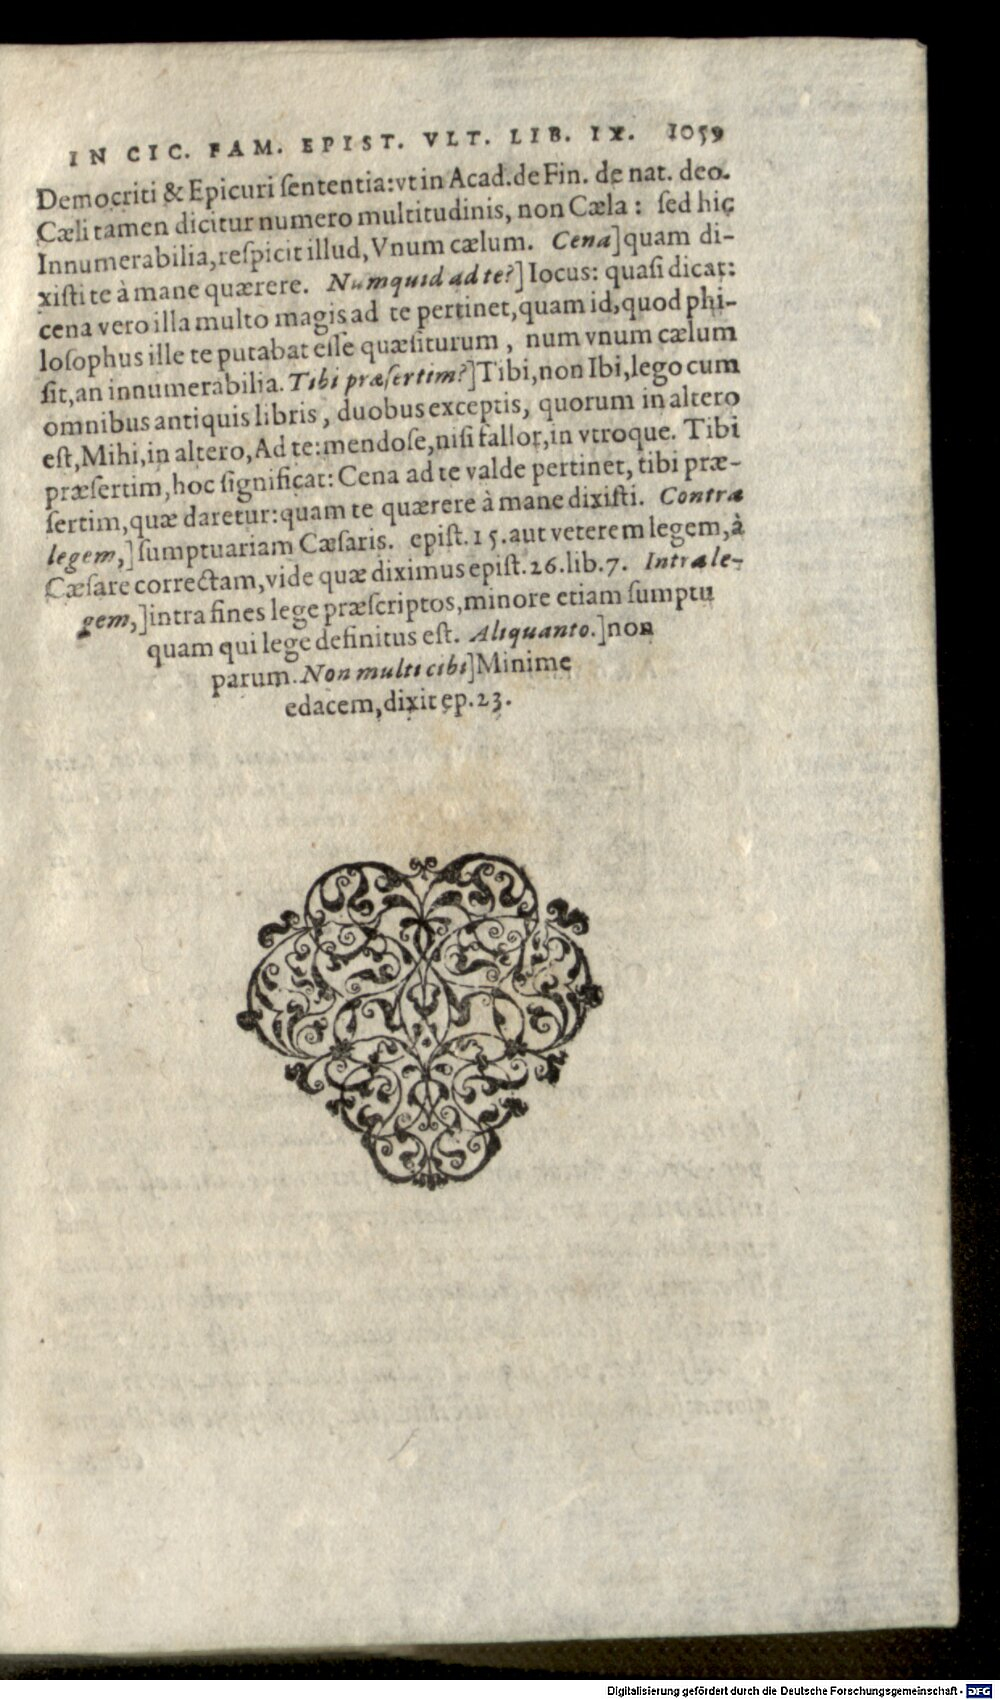 IN CIC. FAM. EPIST. VLT. LIB. IX. 1059
Democriti & Epicuri ſententia:vt in Acad.de Fin. de nat. deo.
Cæli tamen dicitur numero multitudinis, non Cæla : ſed hic
Innumerabilia,reſpicit illud, Vnum cælum. Cena]quam di-
xiſti te à mane quærere. Numquid ad te?] Iocus: quaſi dicat:
cena vero illa multo magis ad te pertinet,quam id,quod phi-
loſophus ille te putabat eſſe quæſiturum , num vnum cælum
ſit,an innumerabilia. Tibi præſertim?]Tibi,non Ibi,lego cum
omnibus antiquis libris, duobus exceptis, quorum in altero
eſt,Mihi,in altero,Ad te:mendoſe,niſi fallor,in vtroque. Tibi
præſertim,hoc ſignificat: Cena ad te valde pertinet, tibi præ-
ſertim,quæ daretur:quam te quærere à mane dixiſti. Contra
legem,]ſumptuariam Cæſaris. epiſt.15.aut veterem legem,à
Cæſare correctam,vide quæ diximus epiſt.26.lib.7. Intra le-
gem,]intra fines lege præſcriptos,minore etiam ſumptu
quam qui lege definitus eſt. Aliquanto.]non
parum. Non multi cibi]Minime
edacem,dixit ep.23.
Digitalisierung gefördert durch die Deutsche Forschungsgemeinschaft - DFG